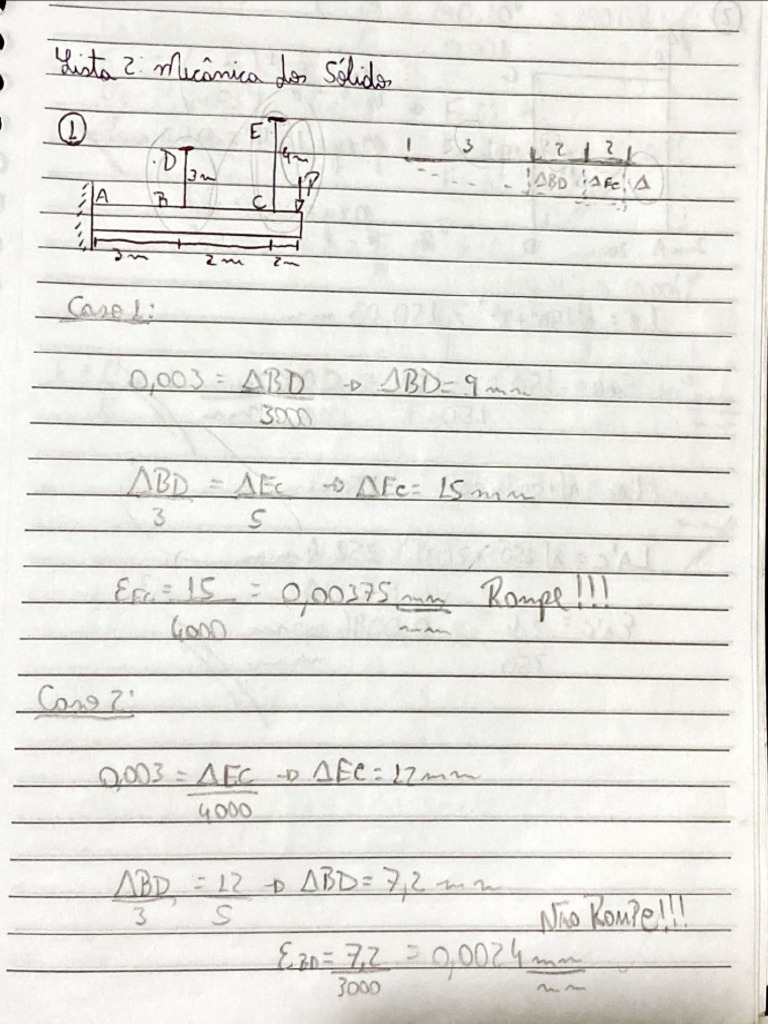 Lista 2: Mecânica dos Sólidos
①
E
D
4m
3m
P
A
B
C
3m 2m 2m
1 3 2 2
ΔBD ΔEC Δ
Caso 1:
0,003 = ΔBD/3000 → ΔBD = 9 mm
ΔBD/3 = ΔEC/5 → ΔEC = 15 mm
εEC = 15/4000 = 0,00375 mm/mm Rompe!!!
Caso 2:
0,003 = ΔEC/4000 → ΔEC = 12 mm
ΔBD/3 = 12/5 → ΔBD = 7,2 mm
Não Rompe!!!
εBD = 7,2/3000 = 0,0024 mm/mm